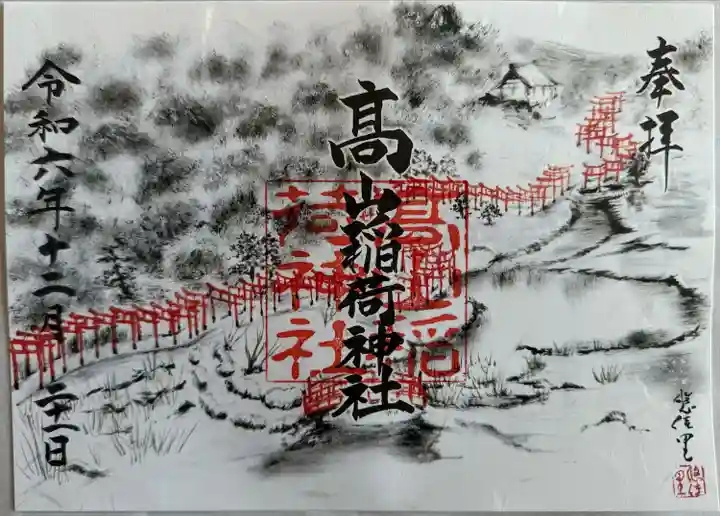 奉拝
髙山稲荷神社
髙山稲
荷神社
令和六年十二月二十一日